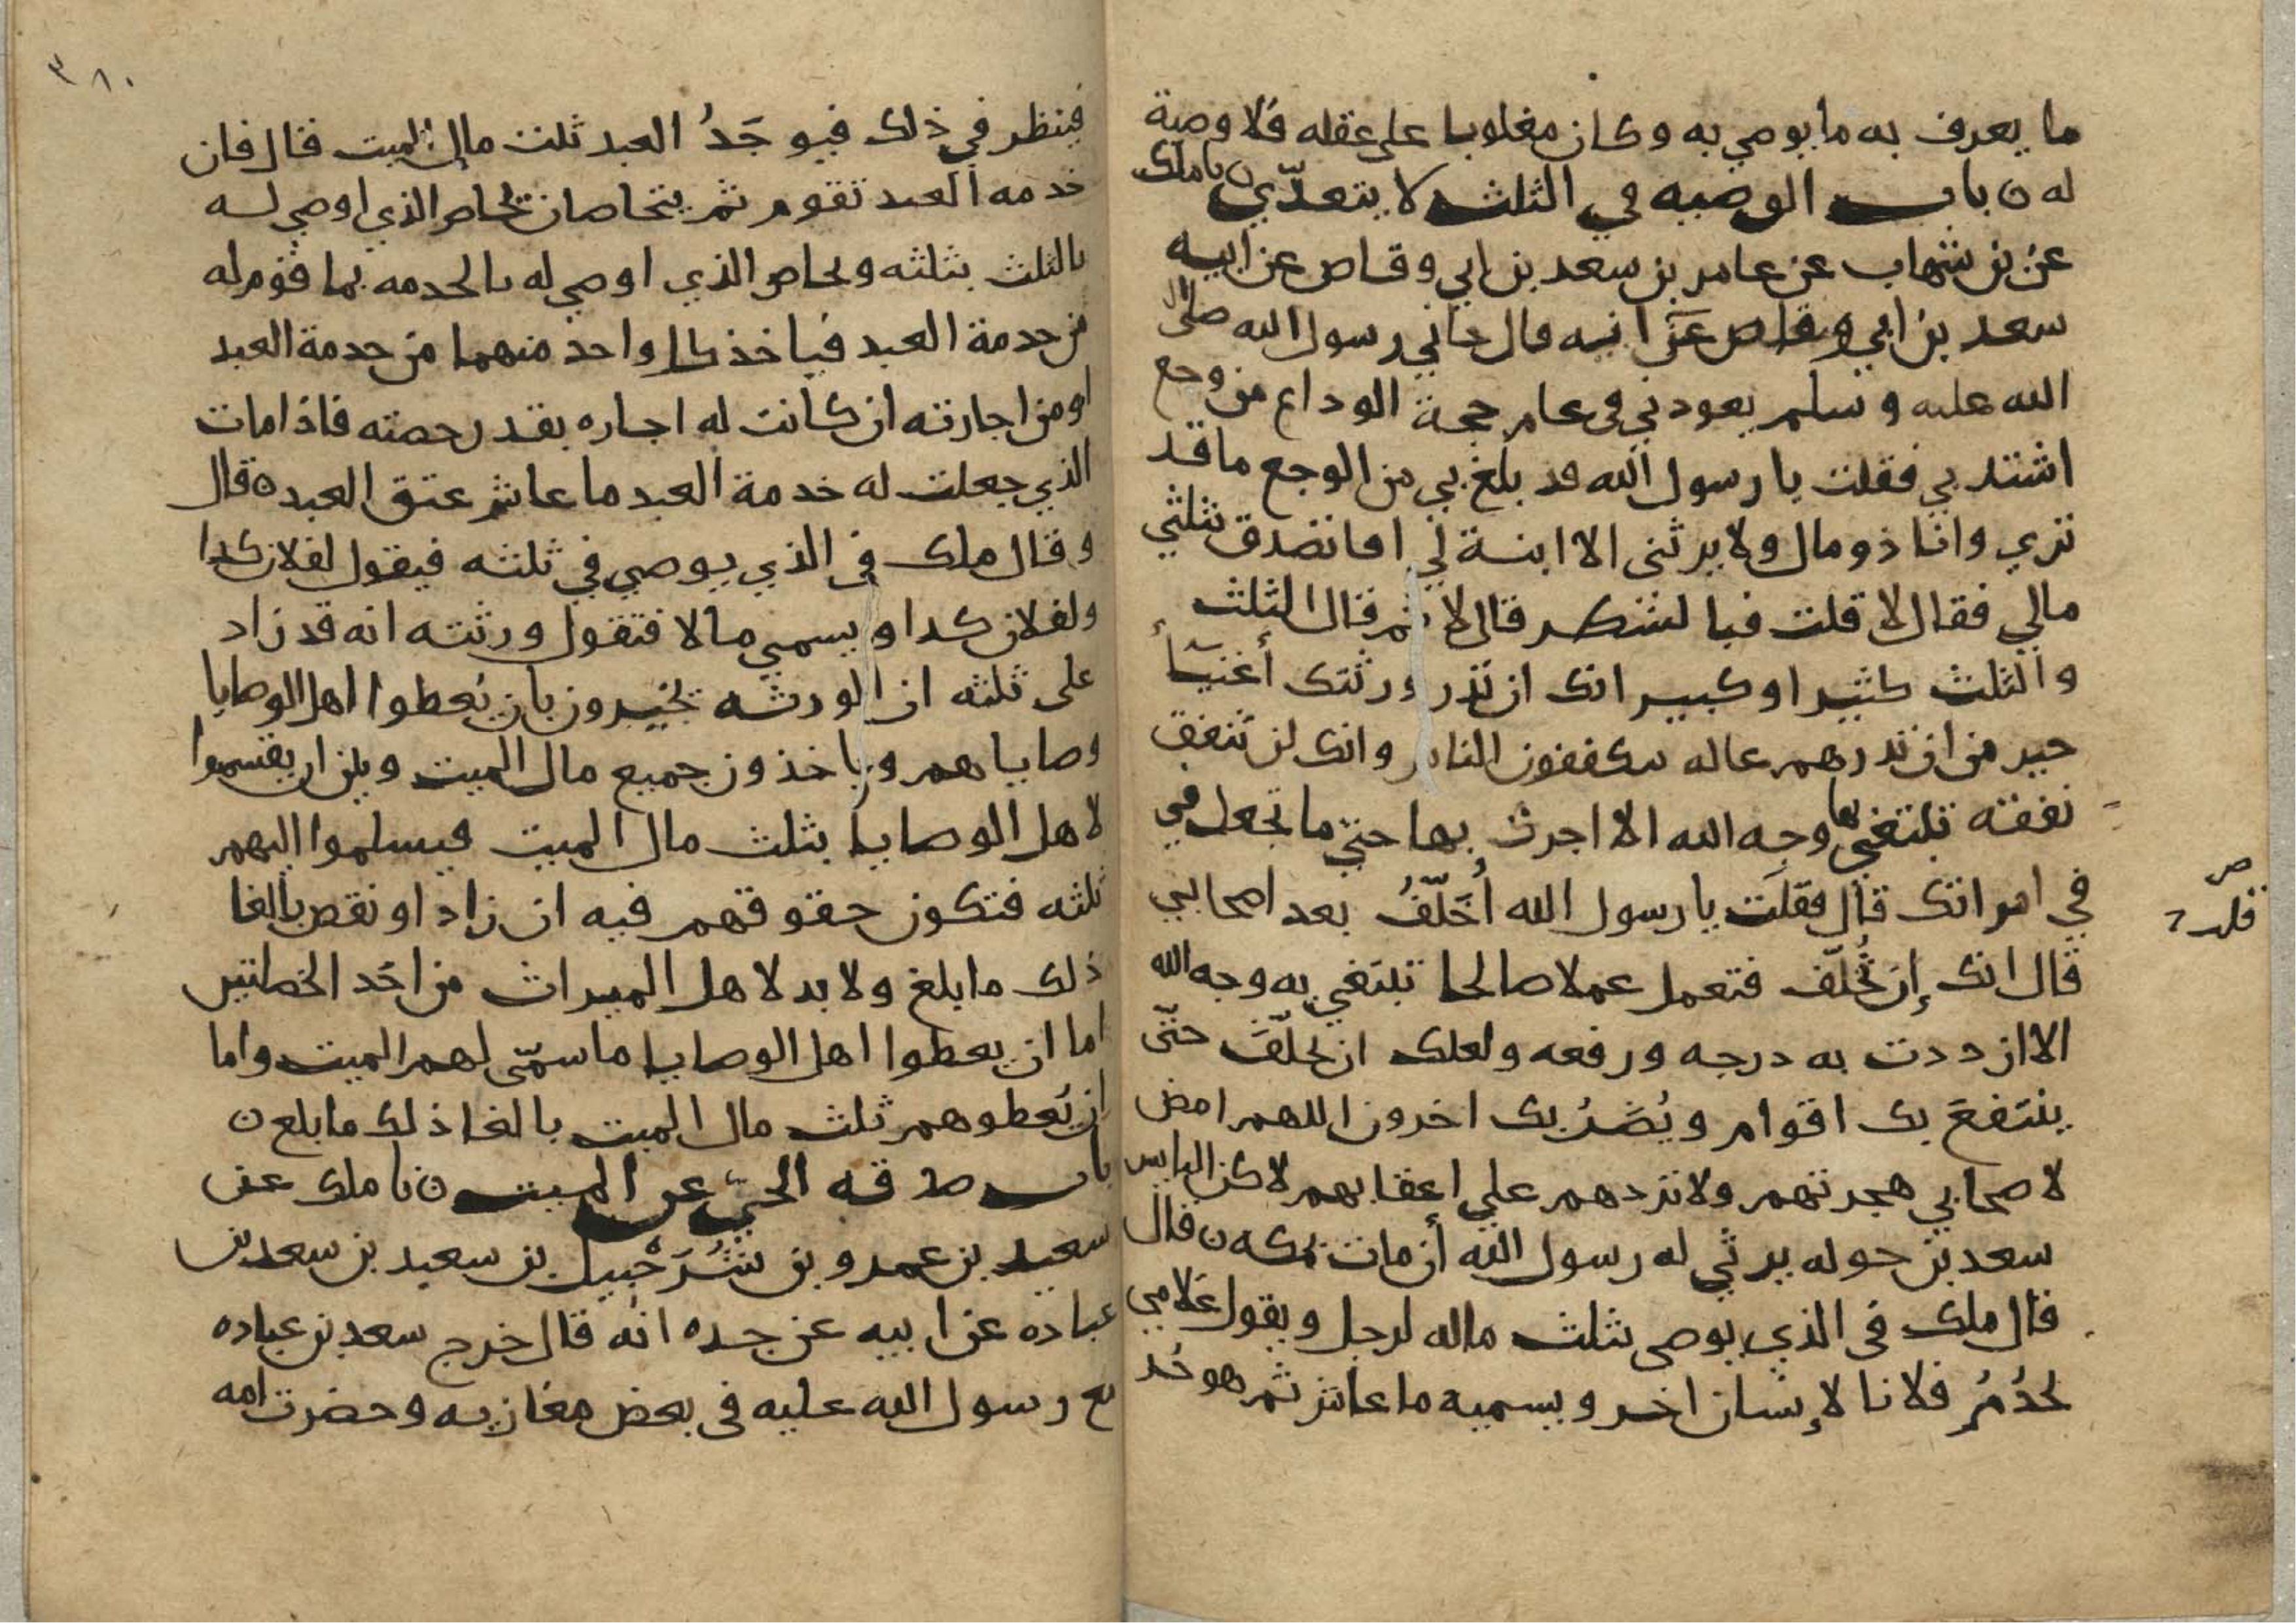 ما يعرف به ما يوصي به وكان مغلوبا على عقله فلا وصية
له ن باب الوصيه في الثلث لا يتعدّي ن نا ملك
عن بن شهاب عن عامر بن سعد بن ابي وقاص عن ابيه
سعد بن ابي وقاص عن ابيه قال جاني رسول الله صلى
الله عليه وسلم يعودني في عام حجة الوداع من وجع
اشتد بي فقلت يا رسول الله قد بلغ بي من الوجع ما قد
تري وانا ذو مال ولا يرثني الا ابنة لي افاتصدق بثلثي
مالي فقال لا قلت فبالشطر قال لا ثم قال الثلث
والثلث كثير او كبير انك ان تذر ورثتك أغنيآأ
خير من ان تدرهم عاله يتكففون الناس وانك لن تنفق
نفقته تبتغي بها وجه الله الا اجرت بها حتي ما تجعل في
في امراتك قال فقلت يا رسول الله أُخَلّفُ بعد اصحابي
قال انك إن تُخلّف فتعمل عملا صالحا تبتغي به وجه الله
الا ازددت به درجه ورفعه ولعلك ان تخلّفَ حتّى
ينتفعَ بك اقوام ويُضَرُ بك اخرون اللهم امض
لاصحابي هجرتهم ولا تردهم علي اعقابهم لاكن البايس
سعد بن خوله يرثي له رسول الله أن مات بمكه ن قال
قال ملك في الذي يوصي بثلث ماله لرجل ويقول غلامي
يخدُمُ فلانا لإنسان اخر ويسميه ما عاش ثم هو حُر
٣٨٠
فينظر في ذلك فيوجَدُ العبد ثلث مال الميت قال فان
خدمه العبد تقوم ثم يتحاصان يحاص الذي اوصي له
بالثلث بثلثه ويحاص الذي اوصي له بالخدمه بما قوم له
من خدمة العبد فياخذ كل واحد منهما من خدمة العبد
او من اجارته ان كانت له اجاره بقدر حصته فاذا مات
الذي جعلت له خدمة العبد ما عاش عتق العبد ه قال
وقال ملك في الذي يوصي في ثلثه فيقول لفلان كدا
ولفلان كدا ويسمي مالا فتقول ورثته انه قد زاد
على ثلثه ان الورثه يخيرون بان يُعطوا اهل الوصايا
وصاياهم وياخذون جميع مال الميت وبين ان يقتسموا
لاهل الوصايا بثلث مال الميت فيسلموا اليهم
ثلثه فتكون حقوقهم فيه ان زاد او نقص بالغا
ذلك ما بلغ ولا بد لاهل الميراث من احَد الخصلتين
اما ان يعطوا اهل الوصايا ما سمّى لهم الميت واما
ان يُعطوهم ثلث مال الميت بالغا ذلك ما بلغ ن
باب صدقه الحيّ عن الميت ن نا ملك عن
سعيد بن عمرو بن شُرَحْبيل بن سعيد بن سعد بن
عباده عن ابيه عن جده انه قال خرج سعد بن عباده
مع رسول الله عليه في بعض مغازيه وحضرت امه